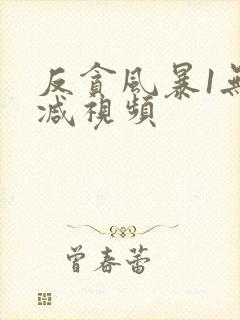 反貪風暴1無
減視頻
曾春蕾